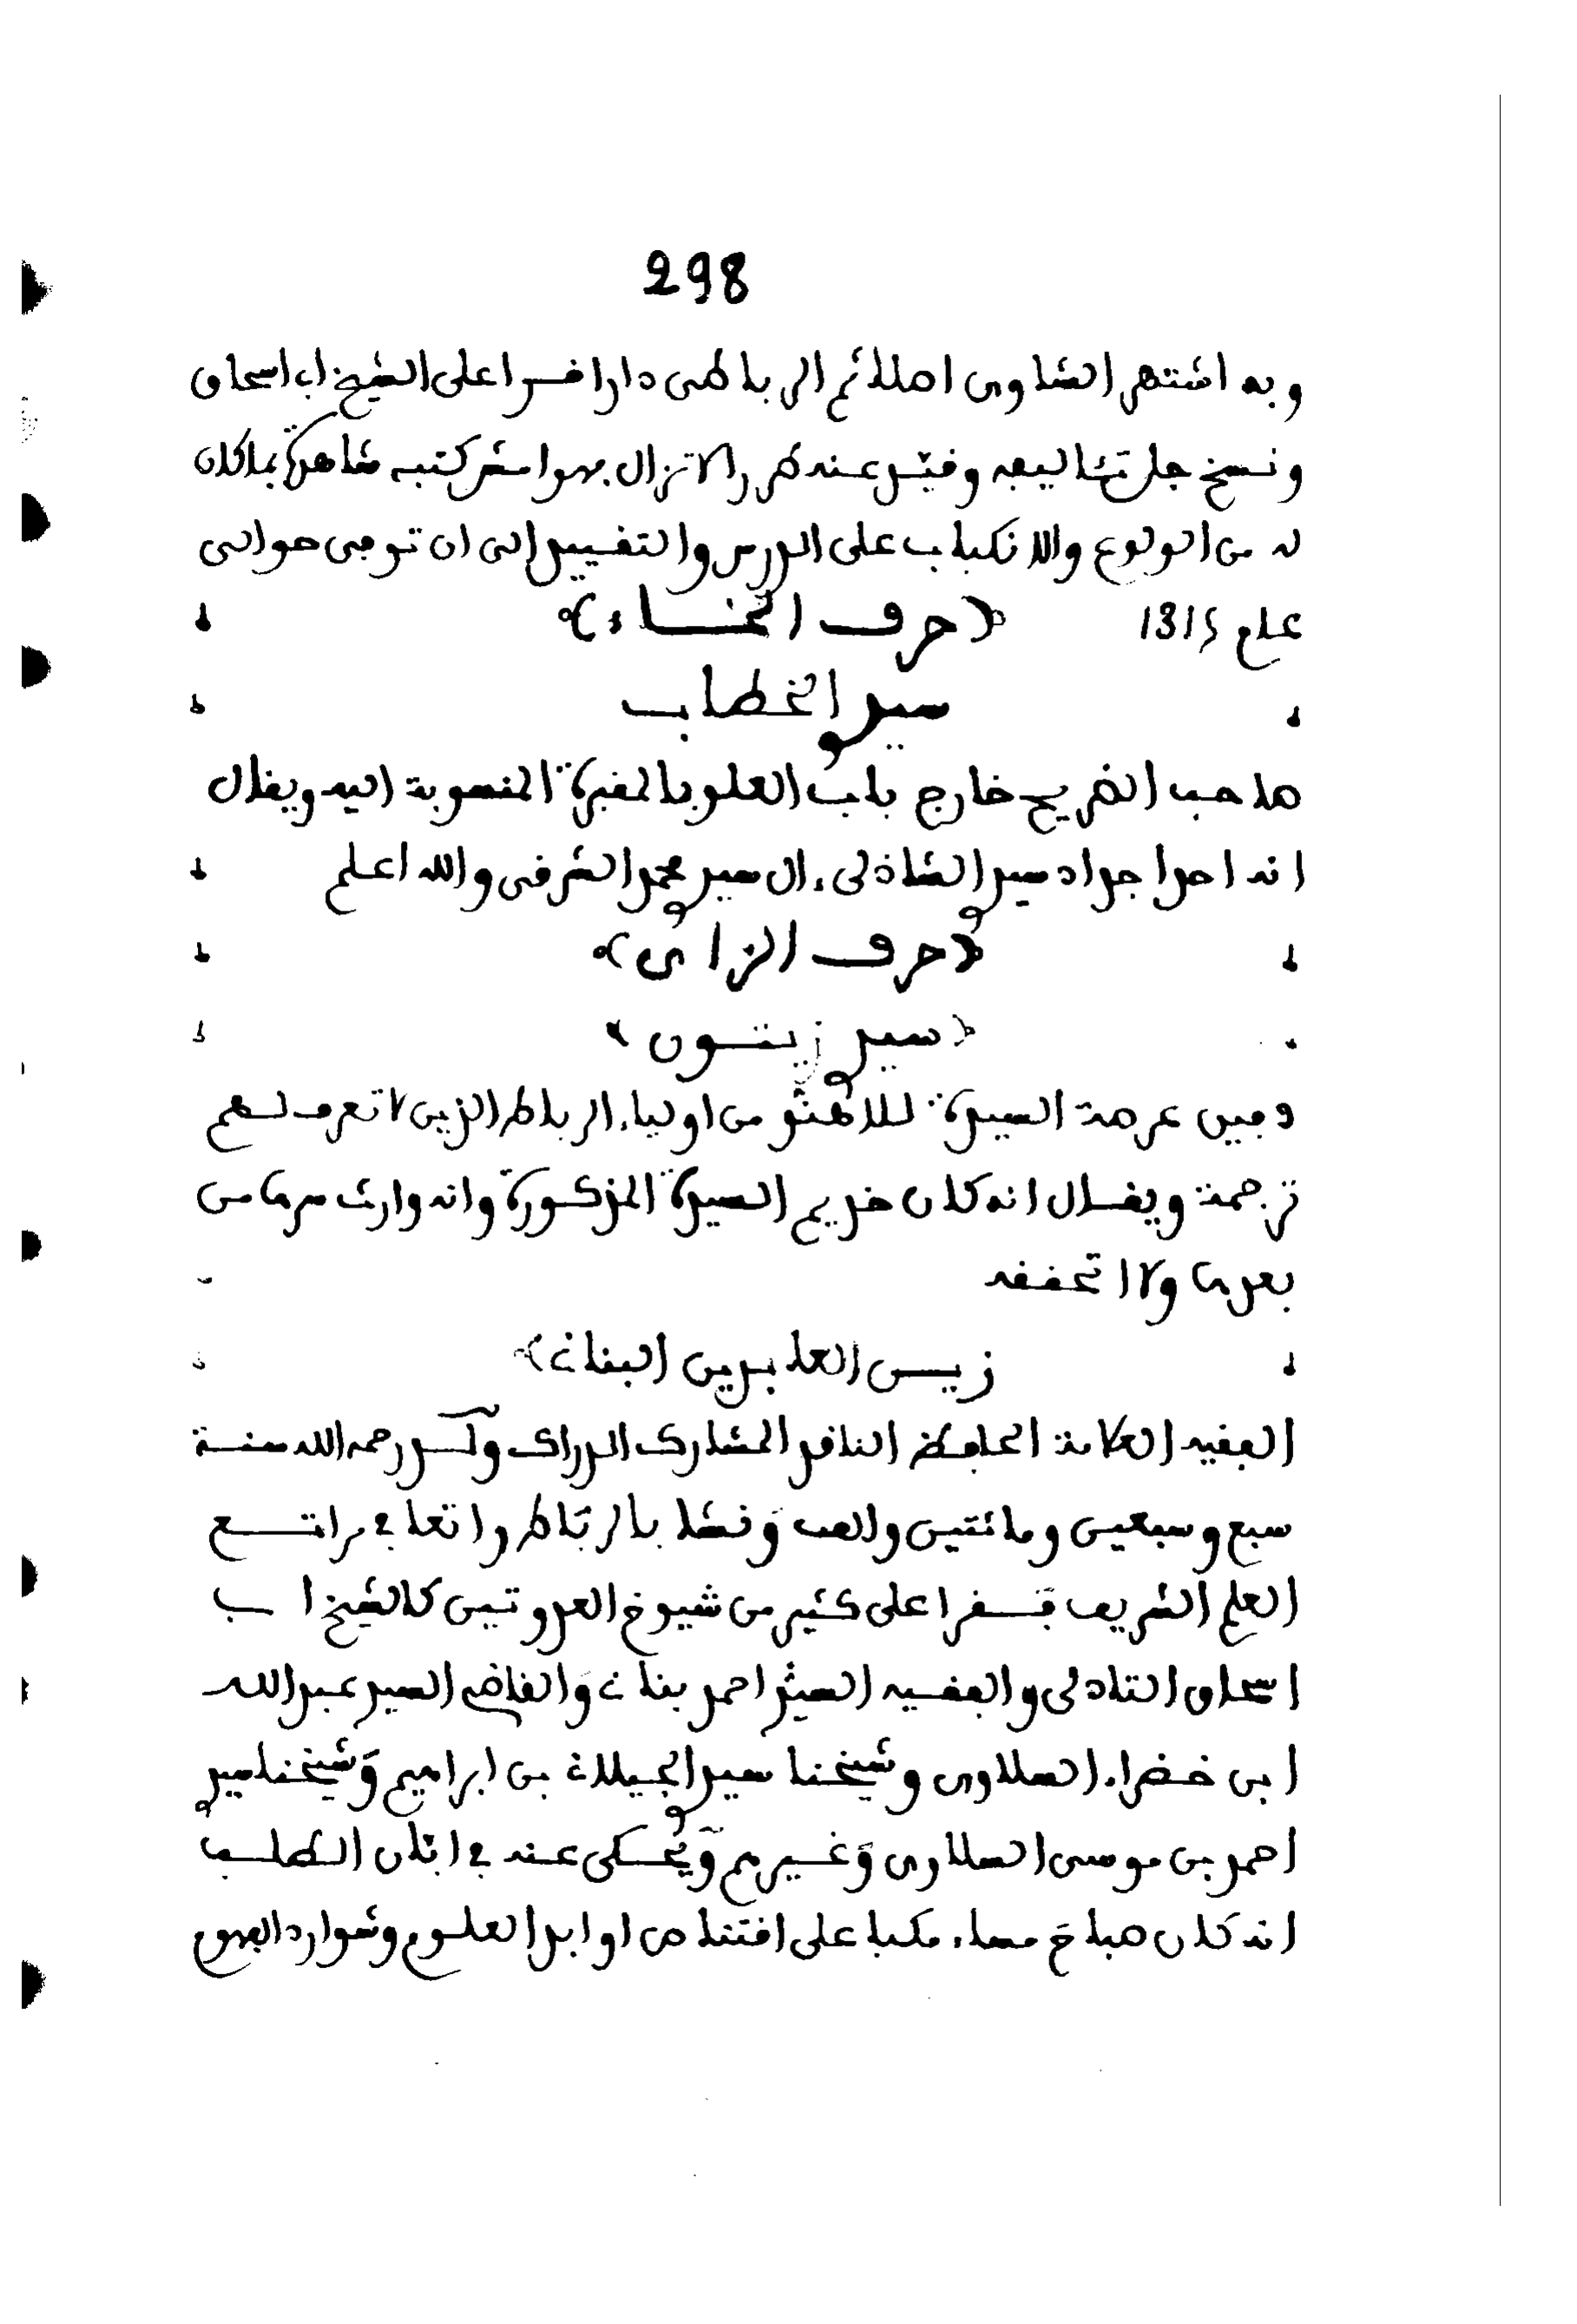 298
وبه اشتهر الشاوى اصلا ثم الرباطى دارا قرا على الشيخ ابى اسحاق
ونسخ جل تئاليفه وقيد عنه طررا لا تزال بهوامش كتبه شاهدة بما كان
له من الولوع والانكباب على الدرس والتقييد الى ان توفى حوالى
عام 1315 (حرف الخاء)
سيدي الخطاب
صاحب الضريح خارج باب العلو بالمقبرة المنسوبة اليه ويقال
انه احد اجداد سيدي الشاذلى ابن سيدي محمد الشرقى والله اعلم
(حرف الزاى)
(سيدي زيتون)
دفين عرصة السيدة للا من اولياء الرباط الذين لا تعرف لهم
ترجمة ويقال انه كان خديم السيدة المذكورة وانه وارث سرها من
بعدها ولا اتحققه
زين العابدين البنانى)
الفقيه العلامة الحافظ الناقد المشارك الدراك ولد رحمه الله سنة
سبع وسبعين ومائتين والف ونشا بالرباط رتع
العلم الشريف فقرا على كثير من شيوخ العدوتين كالشيخ ابى
اسحاق التادلى والفقيه السيد احمد بنانى والقاضى السيد عبد الله
ابن خضراء السلاوى وشيخنا سيدي الجيلانى بن ابراهيم وشيخنا سيدي
احمد بن موسى السلاوى وغيرهم ويحكى عنه فى ابان الطلب
انه كان صباح مساء مكبا على اقتناص اوابد العلوم وشوارد الفهوم